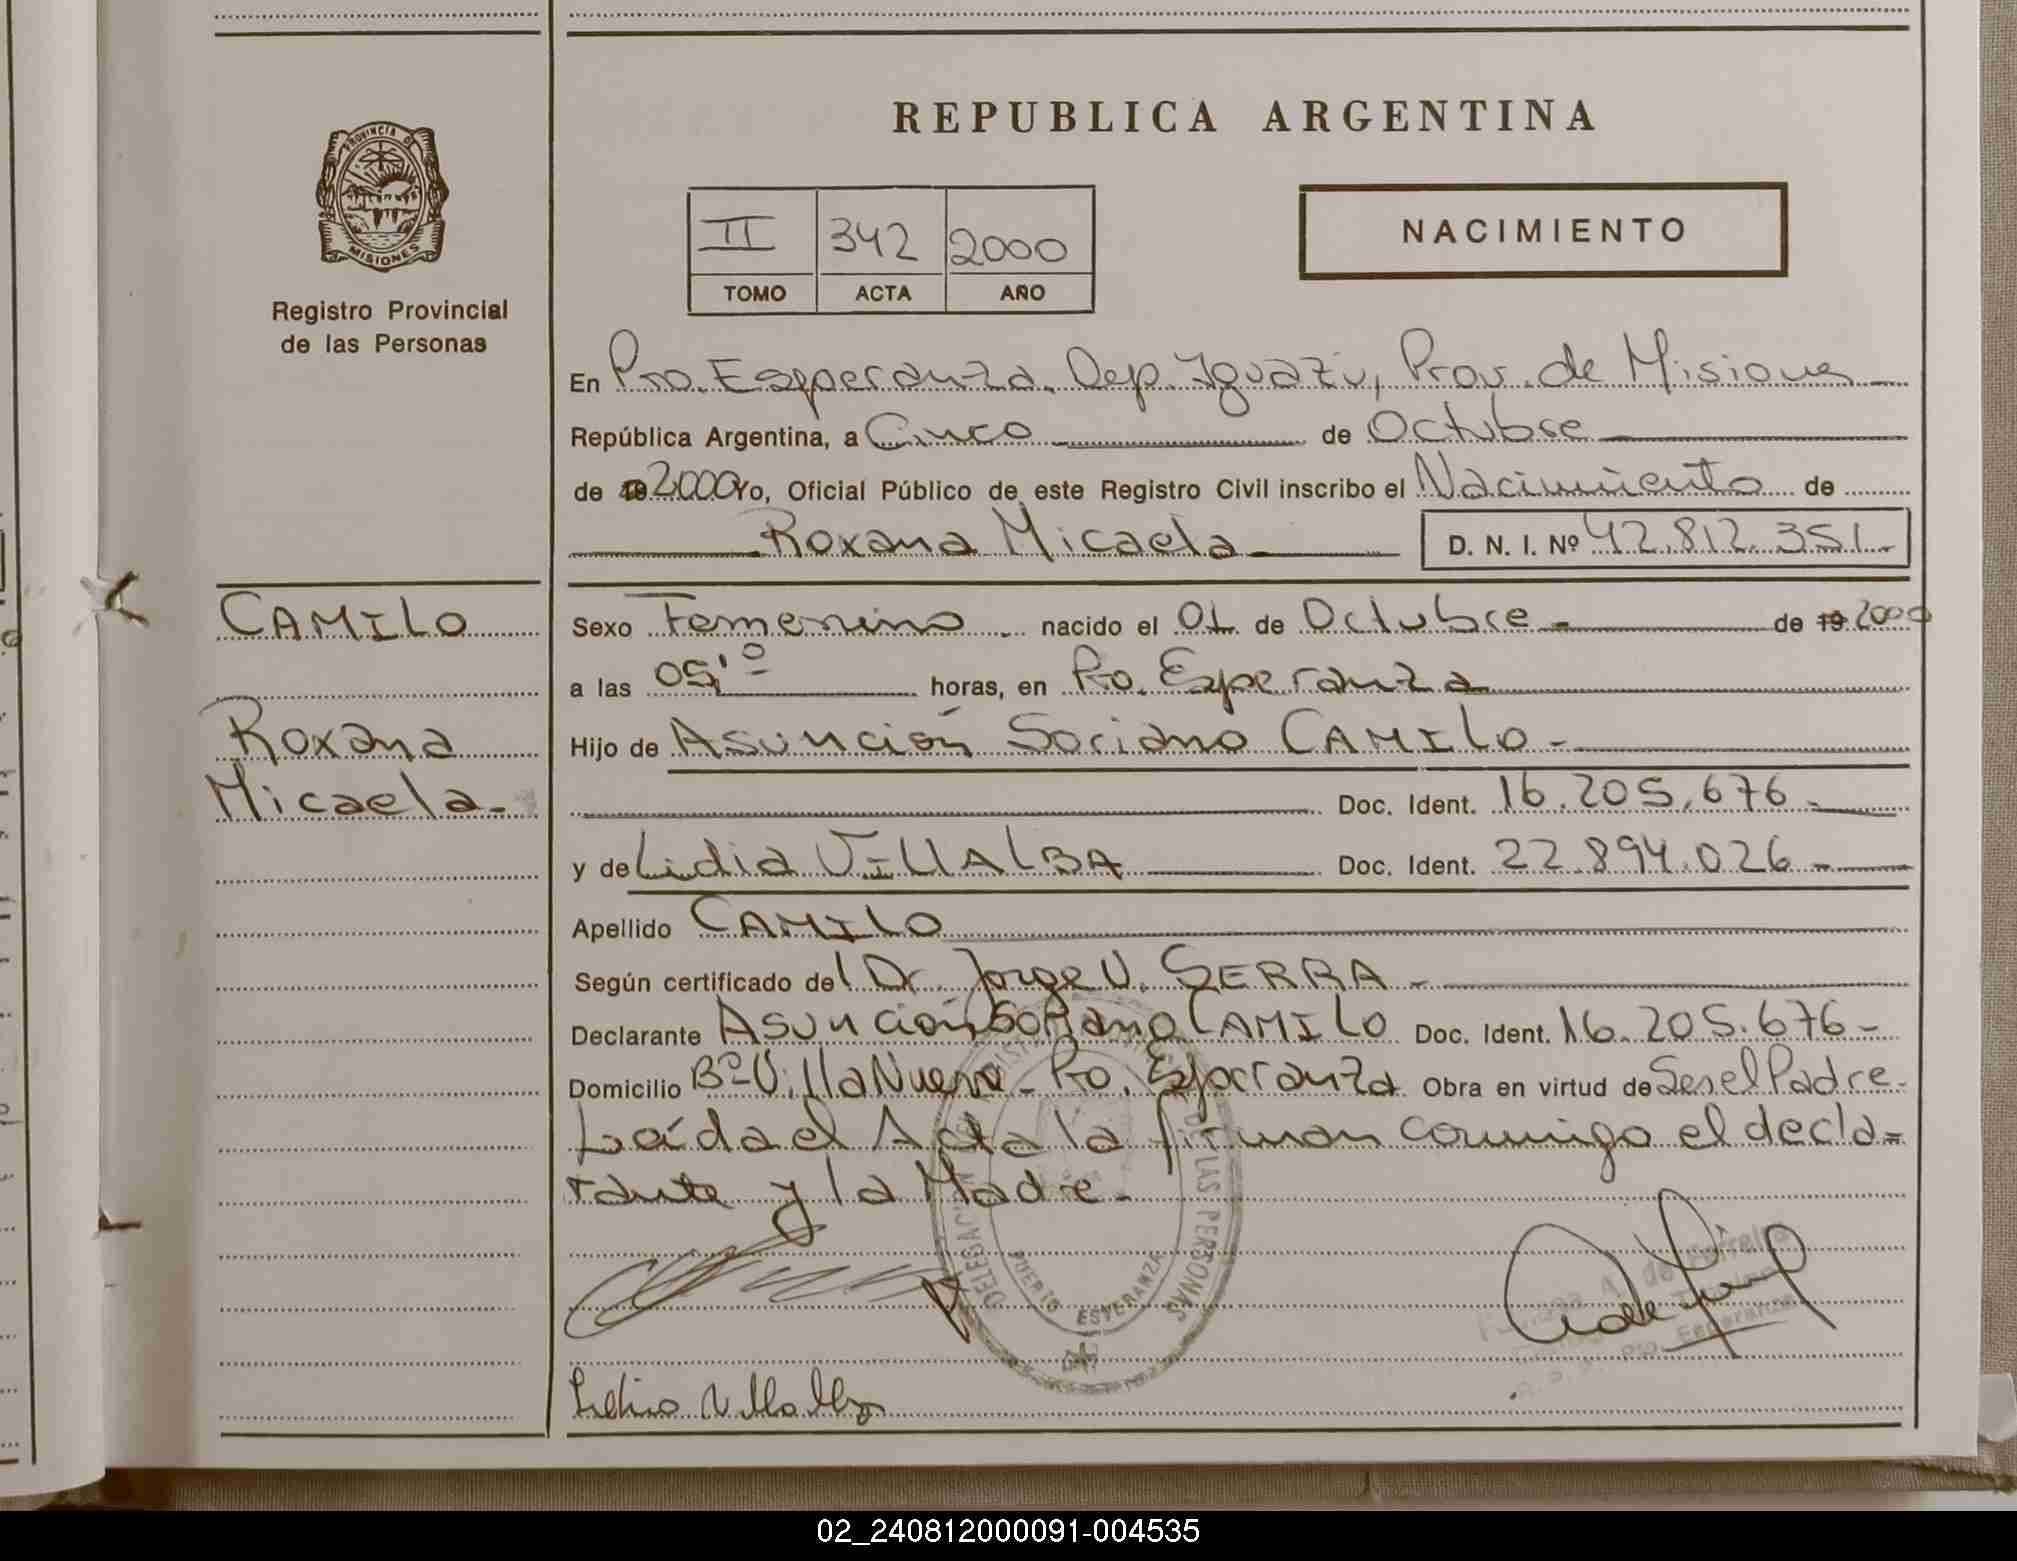 REPUBLICA ARGENTINA
PROVINCIA DE
MISIONES
Registro Provincial
de las Personas
II 342 2000
TOMO ACTA AÑO
NACIMIENTO
En Pto. Esperanza, Dep. Iguazú, Prov. de Misiones
República Argentina, a Cinco de Octubre
de 19 2000 Yo, Oficial Público de este Registro Civil inscribo el Nacimiento de
Roxana Micaela D. N. I. Nº 42.812.351.-
CAMILO
Roxana
Micaela.-
Sexo Femenino nacido el 01 de Octubre - de 19 2000
a las 05,º horas, en Pto. Esperanza
Hijo de Asunción Soriano CAMILO -
Doc. Ident. 16.205.676 -
y de Lidia VILLALBA Doc. Ident. 22.894.026 -
Apellido CAMILO
Según certificado del Dr. Jorge V. SERRA -
Declarante Asunción Soriano CAMILO Doc. Ident. 16.205.676 -
Domicilio Bº Villa Nueva - Pto. Esperanza Obra en virtud de Ser el Padre.
Leída el Acta la firman conmigo el decla=
rante y la Madre.-
DELEGACION REGISTRO PROVINCIAL DE LAS PERSONAS
PUERTO ESPERANZA
A. de Ferreira
Pto. Esperanza
Lidia Villalba
02_240812000091-004535